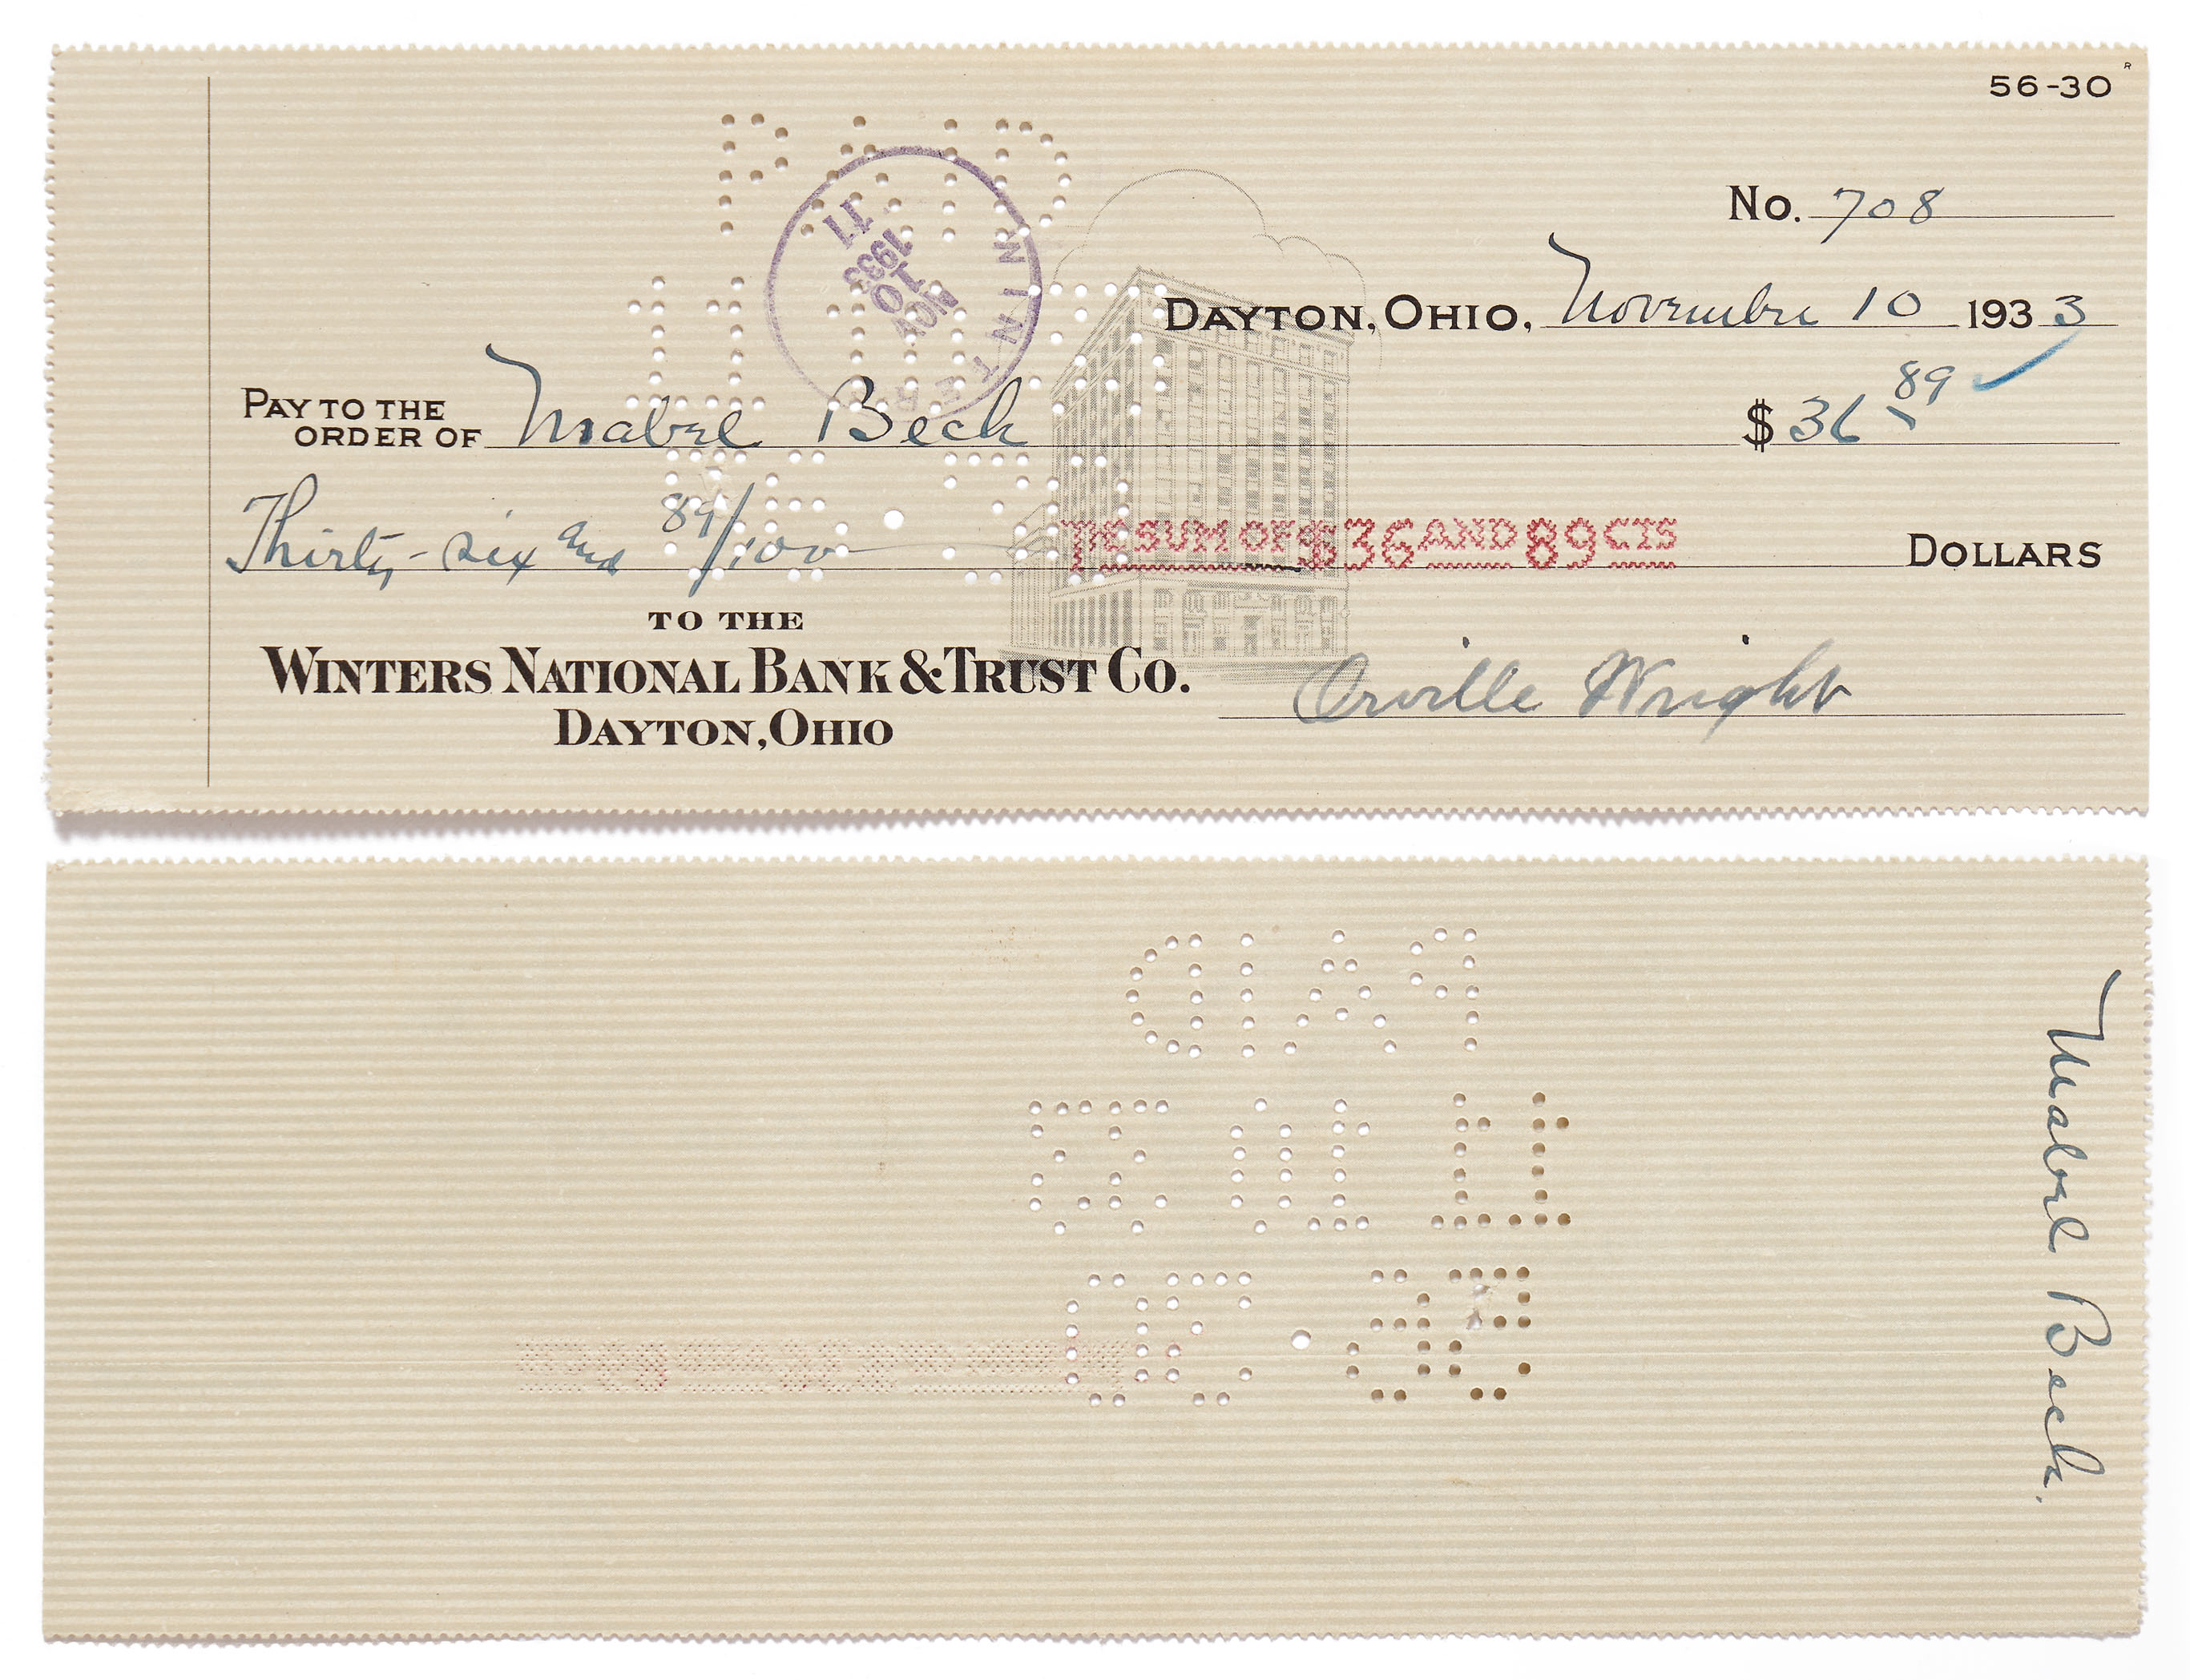 56-30
R
No. 708
DAYTON, OHIO, November 10 1933
PAY TO THE ORDER OF Mabel Beck $36 89
Thirty-six and 89/100 THE SUM OF $36 AND 89 CTS DOLLARS
TO THE
WINTERS NATIONAL BANK & TRUST CO.
DAYTON, OHIO
Orville Wright
PAID
11 10 33
56-30
WINTERS
NOV
10
1933
11
Mabel Beck.